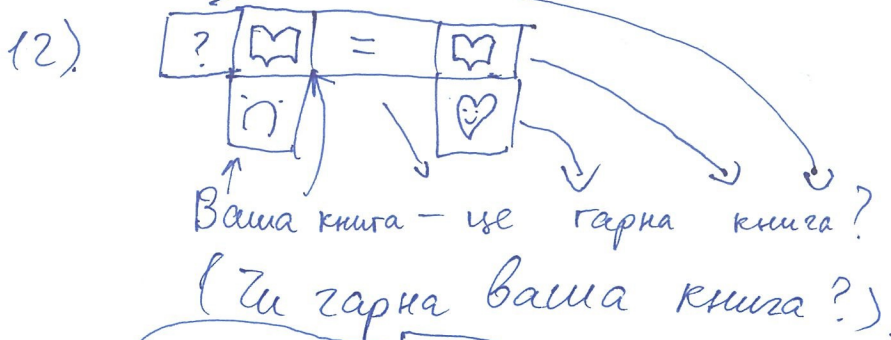 12). ? =
Ваша книга – це гарна книга?
(Чи гарна ваша книга?)